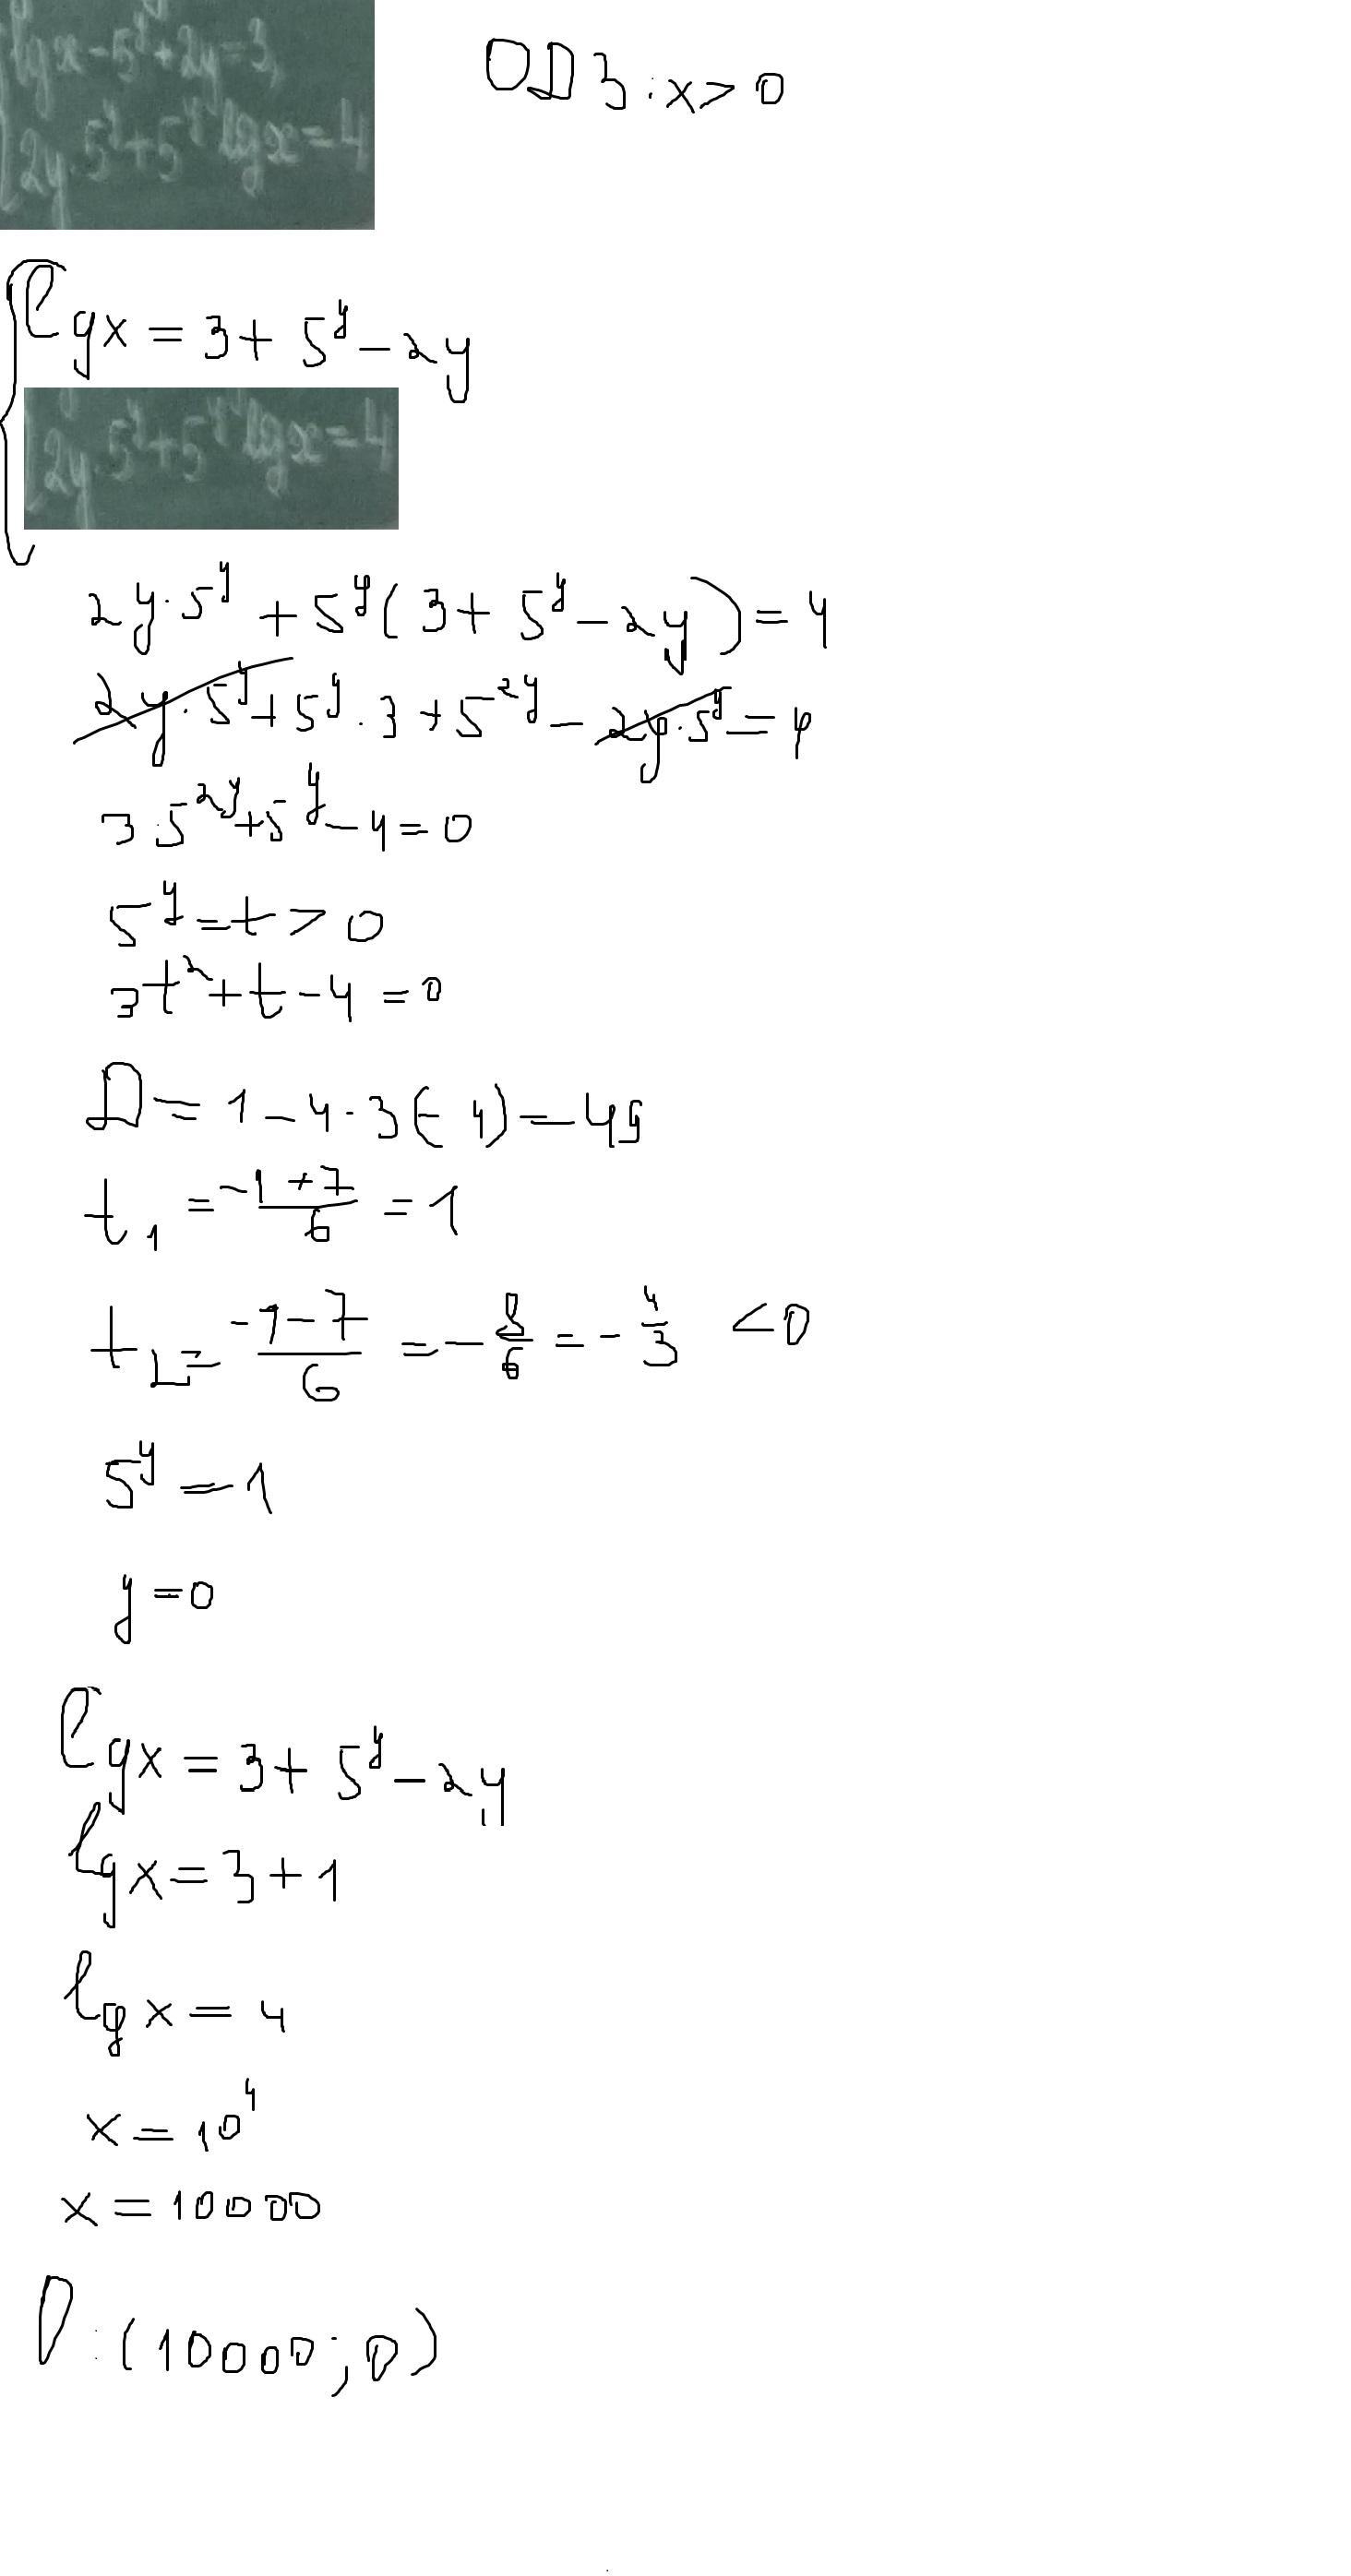 lgx-5^y+2y=3,
ОДЗ: x>0
2y·5^y+5^y lgx=4
lgx=3+5^y-2y
2y·5^y+5^y lgx=4
2y·5^y+5^y(3+5^y-2y)=4
2y·5^y+5^y·3+5^2y-2y·5^y=4
3·5^2y+5^y-4=0
5^y=t>0
3t²+t-4=0
D=1-4·3(-4)=49
t₁=(-1+7)/6=1
t₂=(-1-7)/6=-8/6=-4/3 <0
5^y=1
y=0
lgx=3+5^y-2y
lgx=3+1
lgx=4
x=10⁴
x=10000
О:(10000;0)